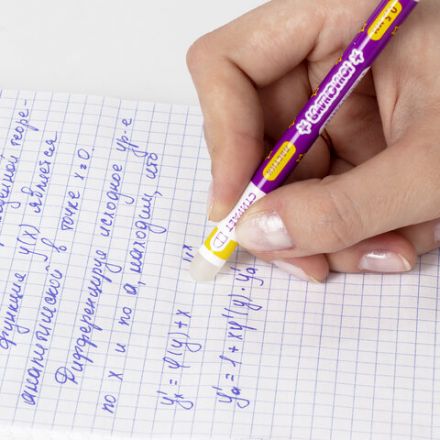 теоре-
функция y(x) является
аналитической в точке x=0.
Дифференцируя исходное ур-е
по x и по a, находим, что
y'ₓ = φ(y)+x
y'ₐ = 1 + xφ'(y)·y'ₐ
СТИРАЕТ
0.5 ММ